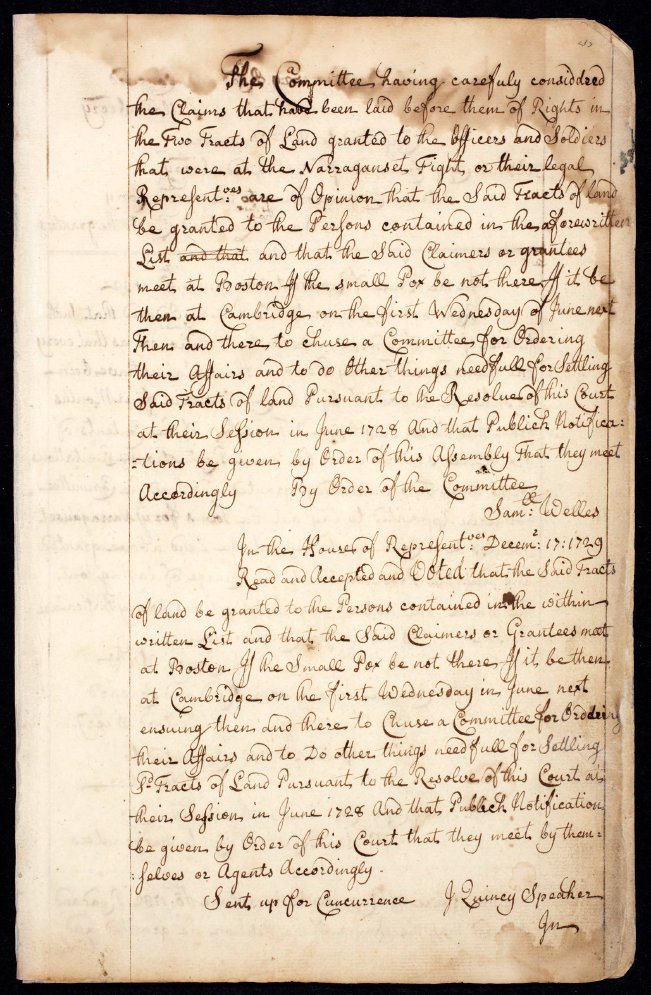 The Committee having carefuly considdred
the Claims that have been laid before them of Rights in
the Two Tracts of Land granted to the Officers and Soldiers
that were at the Narraganset Fight or their legal
Represent:ves are of Opinion that the Said Tracts of land
be granted to the Persons contained in the aforewritten
List and that and that the Said Claimers or grantees
meet at Boston If the small Pox be not there If it be
then at Cambridge on the first Wednesday of June next
Then and there to chuse a Committee for Ordering
their Affairs and to do Other things needfull for Settling
Said Tracts of land Pursuant to the Resolve of this Court
at their Session in June 1728 And that Publick Notifica:
:tions be given by Order of this Assembly That they meet
Accordingly By Order of the Committee
Sam:ll Welles
In the House of Represent:ves Decem:r 17:1729
Read and Accepted and Voted that the Said Tracts
of land be granted to the Persons contained in the within
written List and that the Said Claimers or Grantees meet
at Boston If the Small Pox be not there If it be then
at Cambridge on the first Wednesday in June next
ensuing then and there to Chuse a Committee for Ordering
their Affairs and to Do other things needfull for Settling
Sd Tracts of Land Pursuant to the Resolve of this Court at
their Session in June 1728 And that Publick Notification
be given by Order of this Court that they meet by them=
:selves or Agents Accordingly.
Sent up for Cuncurrence J Quincy Speaker
In